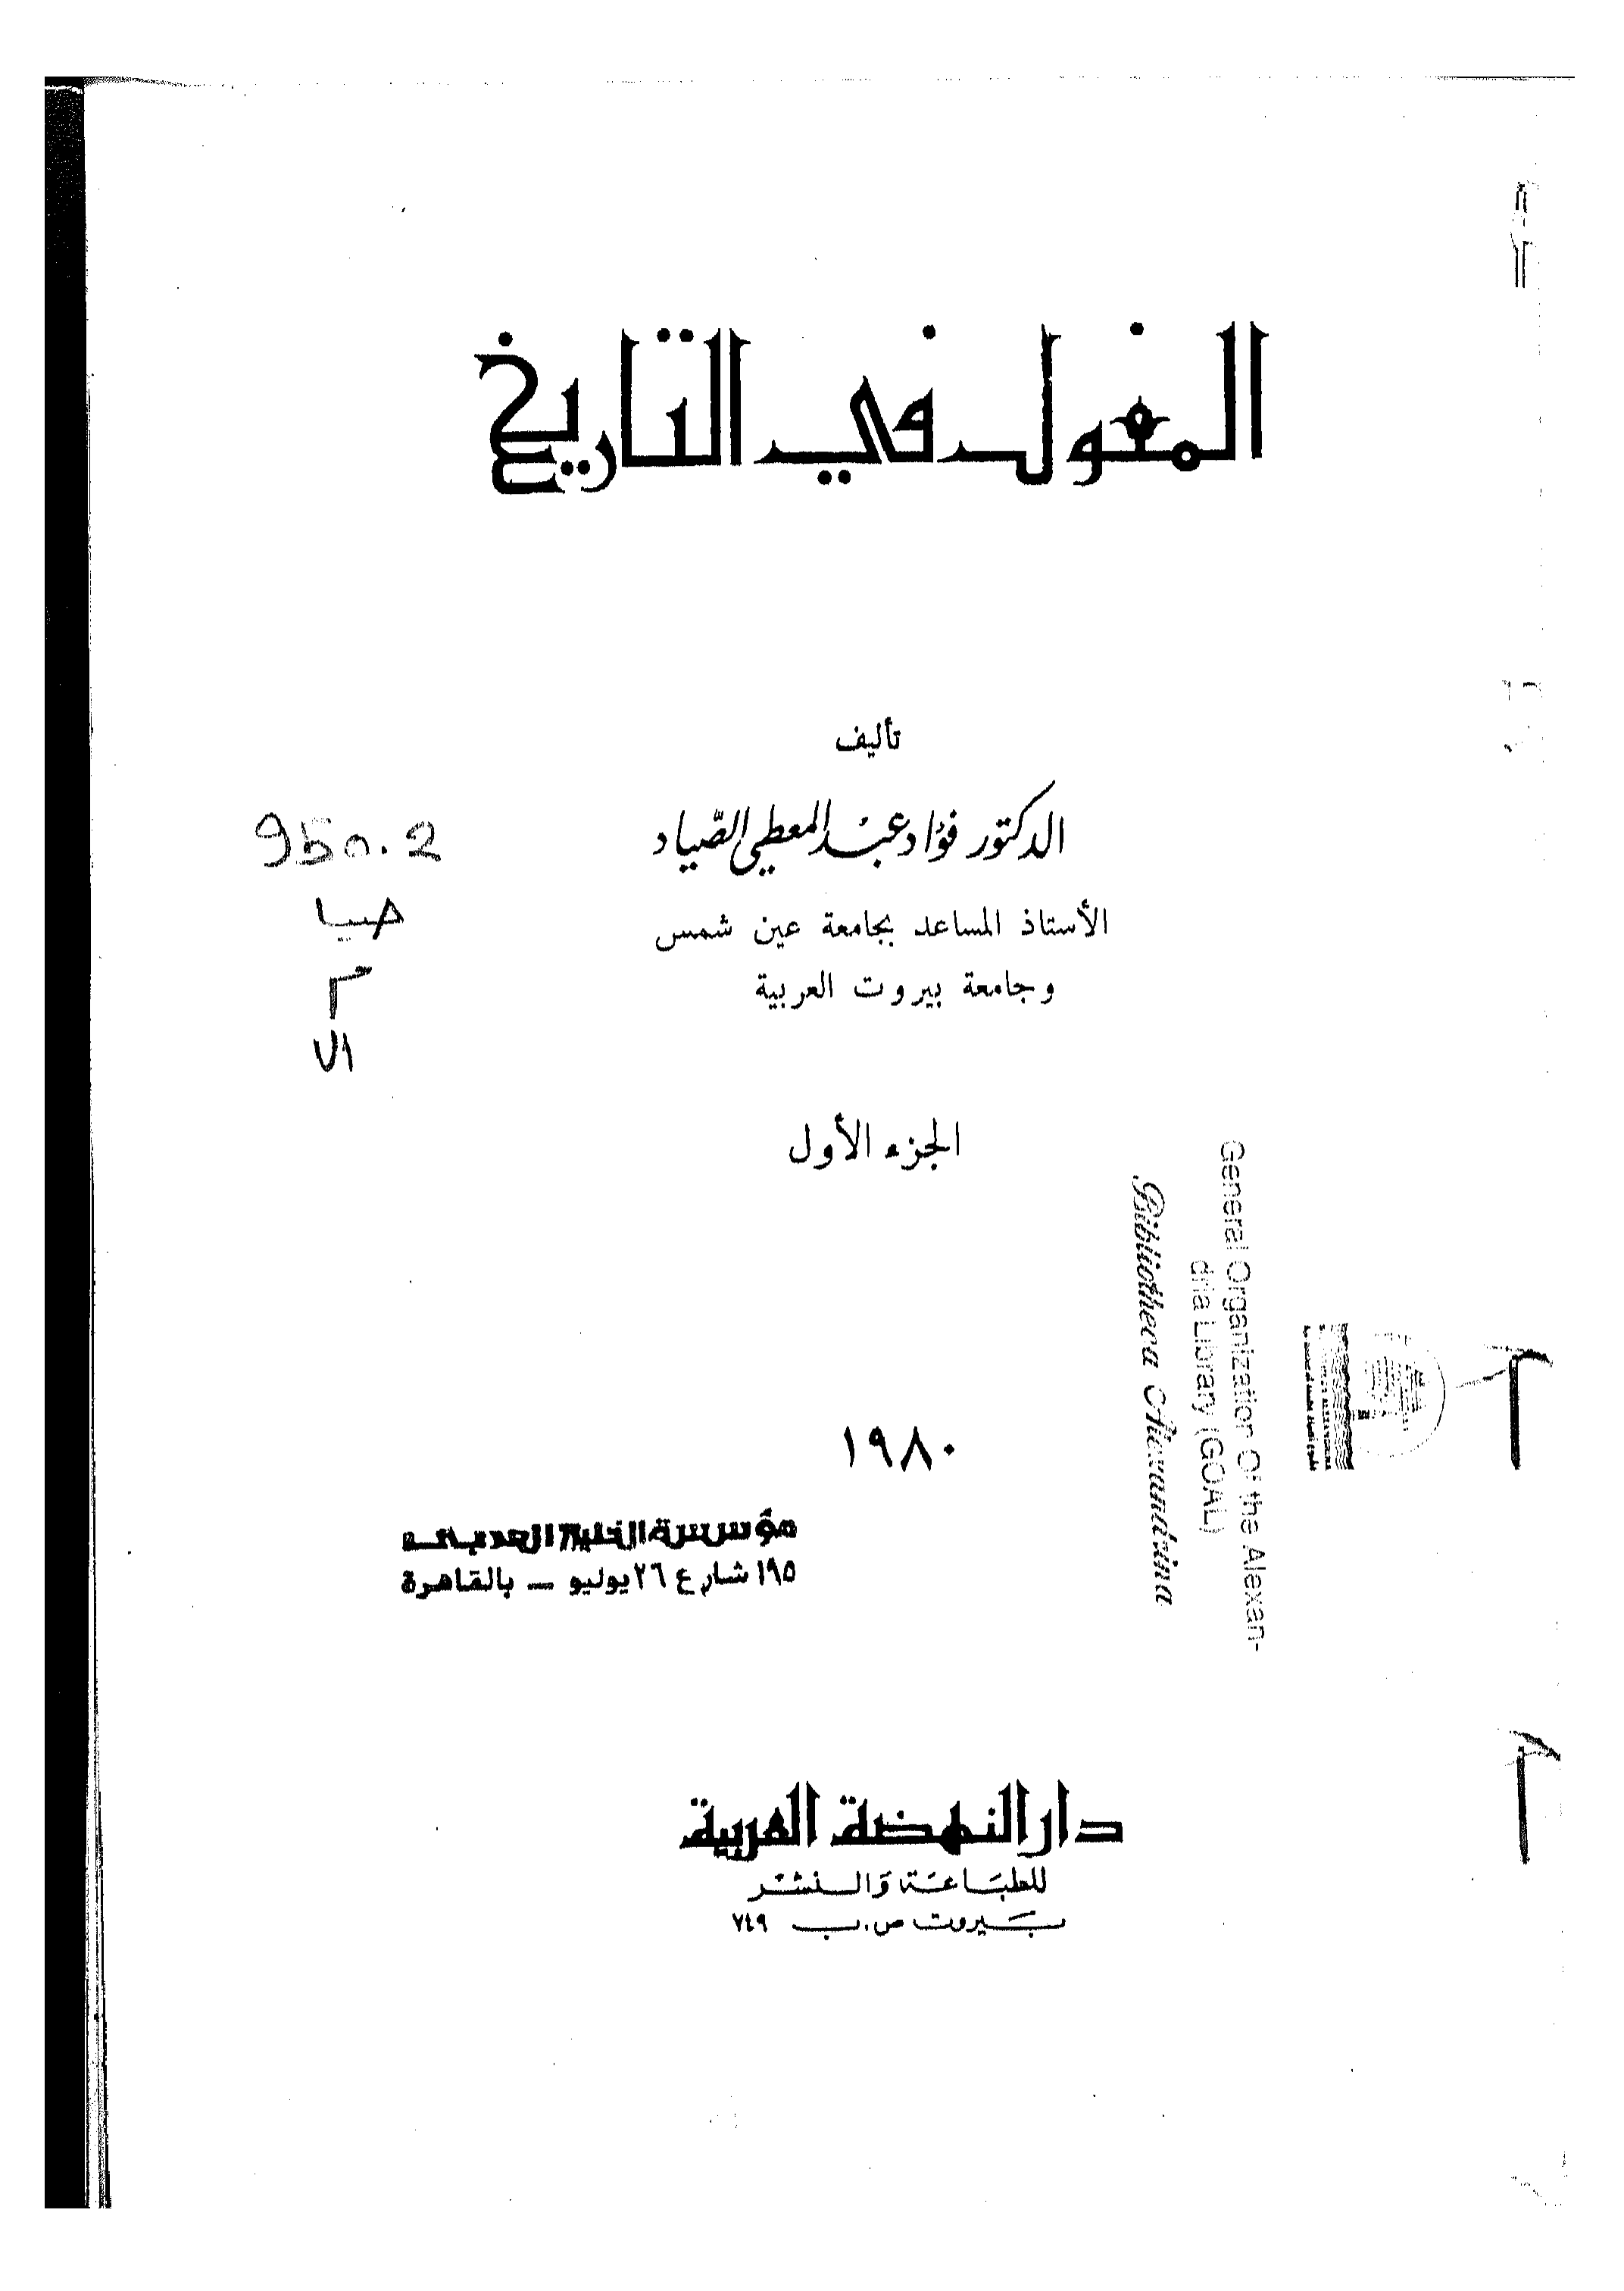 المغول في التاريخ
تأليف
الدكتور فؤاد عبد المعطي الصّياد
الأستاذ المساعد بجامعة عين شمس
وجامعة بيروت العربية
950.2
صيا
م
الجزء الأول
١٩٨٠
General Organization Of the Alexan-
dria Library (GOAL)
Bibliotheca Alexandrina
مؤسسة
١٩٥ شارع ٢٦ يوليو — بالقاهرة
دار النهضة العربية
للطباعة والنشر
بيروت ص.ب ٧٤٩